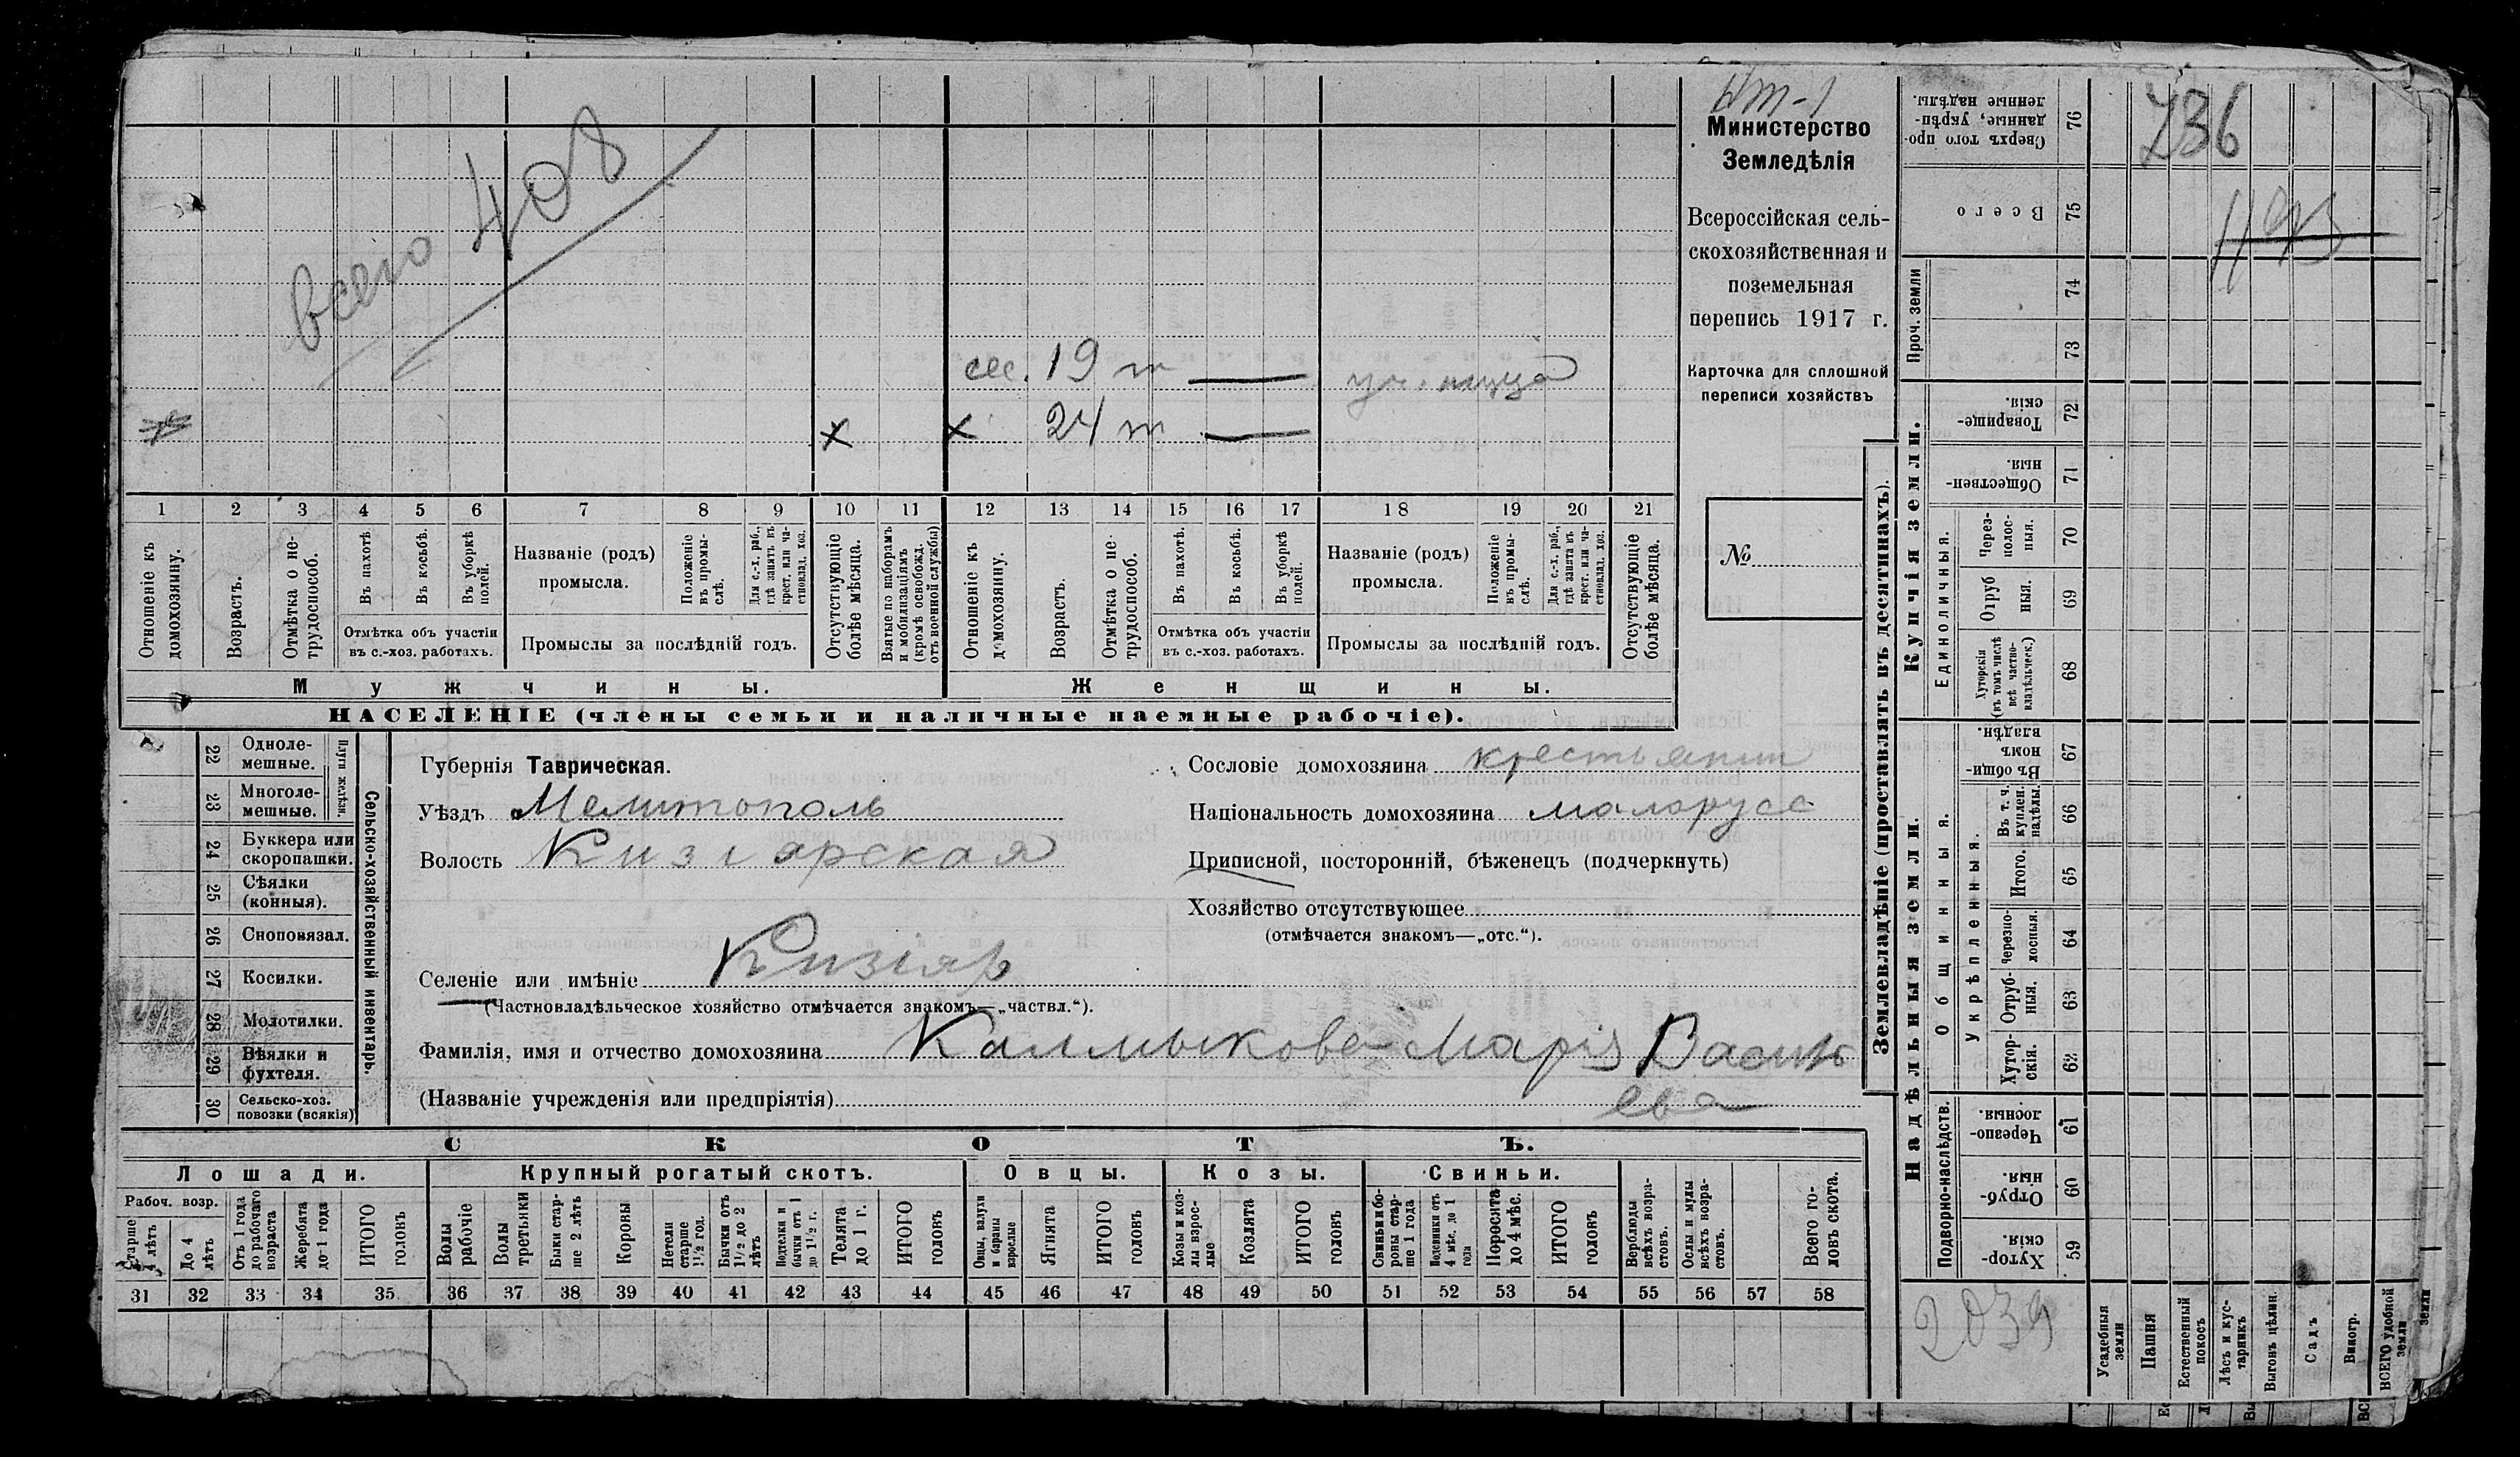 всего 408
сес. 19 т — уч.
х х 24 т —
1 2 3 4 5 6 7 8 9 10 11 12 13 14 15 16 17 18 19 20 21
Отношеніе къ домохозяину.
Возрастъ.
Отмѣтка о не-трудоспособ.
Въ пахотѣ.
Въ косьбѣ.
Въ уборкѣ полей.
Отмѣтка объ участіи
въ с.-хоз. работахъ.
Названіе (родъ)
промысла.
Положеніе въ промы-слѣ.
Для с.-х. раб., гдѣ занятъ въ крест. или ча-стновлад. хоз.
Промыслы за послѣдній годъ.
Отсутствующіе болѣе мѣсяца.
Взятые по наборамъ и мобилизаціямъ (кромѣ освобожд. отъ военной службы)
Отношеніе къ домохозяину.
Возрастъ.
Отмѣтка о не-трудоспособ.
Въ пахотѣ.
Въ косьбѣ.
Въ уборкѣ полей.
Отмѣтка объ участіи
въ с.-хоз. работахъ.
Названіе (родъ)
промысла.
Положеніе въ промы-слѣ.
Для с.-х. раб., гдѣ занята въ крест. или ча-стновлад. хоз.
Промыслы за послѣдній годъ.
Отсутствующіе болѣе мѣсяца.
Мужчины.
Женщины.
НАСЕЛЕНІЕ (члены семьи и наличные наемные рабочіе).
Министерство
Земледѣлія
Всероссійская сель-
скохозяйственная и
поземельная
перепись 1917 г.
Карточка для сплошной
переписи хозяйствъ
№
22 Одноле-мешные.
23 Многоле-мешные.
Плуги желѣзн.
24 Буккера или скоропашки.
25 Сѣялки (конныя).
26 Сноповязал.
27 Косилки.
28 Молотилки.
29 Вѣялки и фухтеля.
30 Сельско-хоз. повозки (всякія)
Сельско-хозяйственный инвентарь.
Губернія Таврическая.
Уѣздъ Мелитополь
Волость Кизіярская
Селеніе или имѣніе Кизіяр
(Частновладѣльческое хозяйство отмѣчается знакомъ—„частвл.“).
Фамилія, имя и отчество домохозяина Калмыкова Марія Василь
ева
(Названіе учрежденія или предпріятія)
Сословіе домохозяина крестьянин
Національность домохозяина малорусс
Приписной, посторонній, бѣженецъ (подчеркнуть)
Хозяйство отсутствующее
(отмѣчается знакомъ—„отс.“).
СКОТЪ.
Лошади.
Рабоч. возр.
Старше 4 лѣтъ
До 4 лѣтъ
Отъ 1 года до рабочаго возраста
Жеребята до 1 года
ИТОГО головъ
Крупный рогатый скотъ.
Волы рабочіе
Волы третьяки
Быки стар-ше 2 лѣтъ
Коровы
Нетели старше 1½ год.
Бычки отъ 1½ до 2 лѣтъ
Подтелки и бычки отъ 1 до 1½ г.
Телята до 1 г.
ИТОГО головъ
Овцы.
Овцы, валухи и бараны взрослые
Ягнята
ИТОГО головъ
Козы.
Козы и коз-лы взрос-лые
Козлята
ИТОГО головъ
Свиньи.
Свиньи и бо-ровы стар-ше 1 года
Подсвинки отъ 4 мѣс. до 1 года
Поросята до 4 мѣс.
ИТОГО головъ
Верблюды всѣхъ возра-стовъ.
Ослы и мулы всѣхъ возра-стовъ.
Всего го-ловъ скота.
31 32 33 34 35 36 37 38 39 40 41 42 43 44 45 46 47 48 49 50 51 52 53 54 55 56 57 58
Землевладѣніе (проставлять въ десятинахъ).
736
Сверхъ того про-данные, укрѣп-ленные надѣлы. 76
Всего 75
Проч. земли 74
73
Купчія земли.
Товарище-скія. 72
Обществен-ныя. 71
Единоличныя.
Через-полос-ныя. 70
Отруб ныя. 69
Хуторскія (въ томъ числѣ всѣ частно-владѣльческ.) 68
Надѣльныя земли.
Общинныя.
Въ общи-номъ владѣн. 67
Укрѣпленныя.
Въ т. ч. куплен. надѣлы. 66
Итого. 65
Черезпо-лосныя. 64
Отруб-ныя. 63
Хутор-скія. 62
Подворно-наслѣдств.
Черезпо-лосныя. 61
Отруб-ныя. 60
Хутор-скія. 59
2039
Усадебныя земли
Пашня
Естественный покосъ
Лѣсъ и кус-тарникъ
Выгонъ цѣлин.
Садъ
Виногр.
ВСЕГО удобной земли
земли